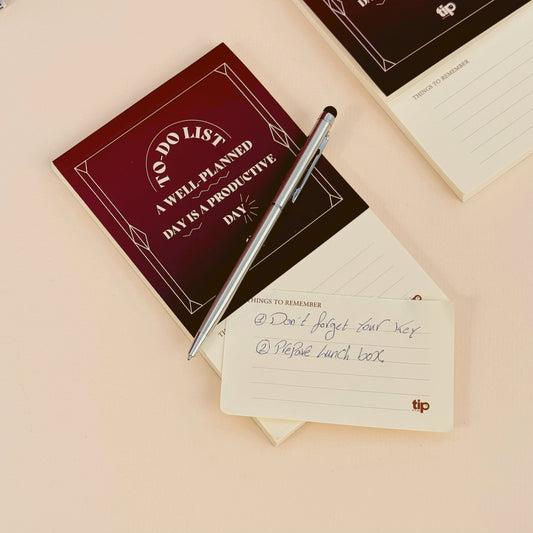 TO-DO LIST
A WELL-PLANNED
DAY IS A PRODUCTIVE
DAY
THINGS TO REMEMBER
① Don't forget Your Key
② Prepare Lunch box.
tip
tip
THINGS TO REMEMBER